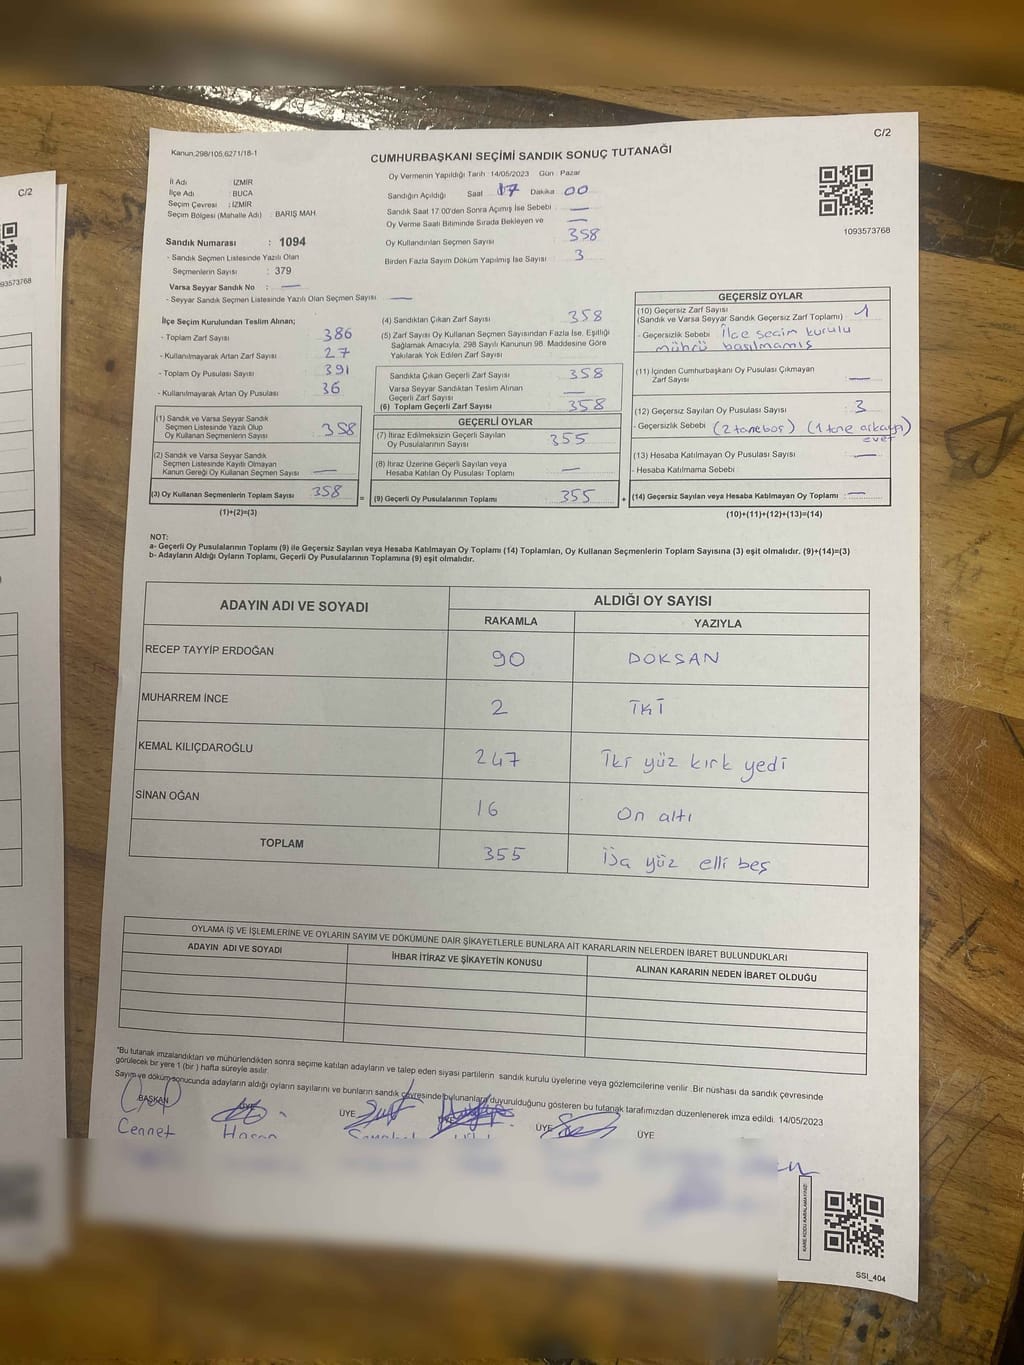 C/2
C/2
Kanun;298/105,6271/18-1
CUMHURBAŞKANI SEÇİMİ SANDIK SONUÇ TUTANAĞI
Oy Vermenin Yapıldığı Tarih :14/05/2023 Gün : Pazar
İl Adı : İZMİR
İlçe Adı : BUCA
Seçim Çevresi : İZMİR
Seçim Bölgesi (Mahalle Adı) : BARIŞ MAH.
Sandığın Açıldığı Saat 17 Dakika 00
Sandık Saat 17.00'den Sonra Açımış İse Sebebi —
Oy Verme Saati Bitiminde Sırada Bekleyen ve —
Oy Kullandırılan Seçmen Sayısı 358
Birden Fazla Sayım Döküm Yapılmış İse Sayısı 3
1093573768
93573768
Sandık Numarası : 1094
- Sandık Seçmen Listesinde Yazılı Olan
Seçmenlerin Sayısı : 379
Varsa Seyyar Sandık No : —
- Seyyar Sandık Seçmen Listesinde Yazılı Olan Seçmen Sayısı —
İlçe Seçim Kurulundan Teslim Alınan;
- Toplam Zarf Sayısı 386
- Kullanılmayarak Artan Zarf Sayısı 27
- Toplam Oy Pusulası Sayısı 391
- Kullanılmayarak Artan Oy Pusulası 36
(1) Sandık ve Varsa Seyyar Sandık
Seçmen Listesinde Yazılı Olup
Oy Kullanan Seçmenlerin Sayısı 358
(2) Sandık ve Varsa Seyyar Sandık
Seçmen Listesinde Kayıtlı Olmayan
Kanun Gereği Oy Kullanan Seçmen Sayısı —
(3) Oy Kullanan Seçmenlerin Toplam Sayısı 358
(1)+(2)=(3)
(4) Sandıktan Çıkan Zarf Sayısı 358
(5) Zarf Sayısı Oy Kullanan Seçmen Sayısından Fazla İse, Eşitliği
Sağlamak Amacıyla, 298 Sayılı Kanunun 98. Maddesine Göre
Yakılarak Yok Edilen Zarf Sayısı
Sandıkta Çıkan Geçerli Zarf Sayısı 358
Varsa Seyyar Sandıktan Teslim Alınan
Geçerli Zarf Sayısı —
(6) Toplam Geçerli Zarf Sayısı 358
GEÇERLİ OYLAR
(7) İtiraz Edilmeksizin Geçerli Sayılan
Oy Pusulalarının Sayısı 355
(8) İtiraz Üzerine Geçerli Sayılan veya
Hesaba Katılan Oy Pusulası Toplamı —
= (9) Geçerli Oy Pusulalarının Toplamı 355 +
GEÇERSİZ OYLAR
(10) Geçersiz Zarf Sayısı 1
(Sandık ve Varsa Seyyar Sandık Geçersiz Zarf Toplamı)
- Geçersizlik Sebebi : İlce secim kurulu
mührü basılmamış
(11) İçinden Cumhurbaşkanı Oy Pusulası Çıkmayan
Zarf Sayısı —
(12) Geçersiz Sayılan Oy Pusulası Sayısı 3
- Geçersizlik Sebebi : (2 tane boş) (1 tane arkaya)
evet
(13) Hesaba Katılmayan Oy Pusulası Sayısı —
- Hesaba Katılmama Sebebi
(14) Geçersiz Sayılan veya Hesaba Katılmayan Oy Toplamı : —
(10)+(11)+(12)+(13)=(14)
NOT:
a- Geçerli Oy Pusulalarının Toplamı (9) ile Geçersiz Sayılan veya Hesaba Katılmayan Oy Toplamı (14) Toplamları, Oy Kullanan Seçmenlerin Toplam Sayısına (3) eşit olmalıdır. (9)+(14)=(3)
b- Adayların Aldığı Oyların Toplamı, Geçerli Oy Pusulalarının Toplamına (9) eşit olmalıdır.
ADAYIN ADI VE SOYADI
ALDIĞI OY SAYISI
RAKAMLA YAZIYLA
RECEP TAYYİP ERDOĞAN 90 DOKSAN
MUHARREM İNCE 2 İKİ
KEMAL KILIÇDAROĞLU 247 İki yüz kırk yedi
SİNAN OĞAN 16 On altı
TOPLAM 355 yüz elli beş
OYLAMA İŞ VE İŞLEMLERİNE VE OYLARIN SAYIM VE DÖKÜMÜNE DAİR ŞİKAYETLERLE BUNLARA AİT KARARLARIN NELERDEN İBARET BULUNDUKLARI
ADAYIN ADI VE SOYADI İHBAR İTİRAZ VE ŞİKAYETİN KONUSU ALINAN KARARIN NEDEN İBARET OLDUĞU
*Bu tutanak imzalandıktan ve mühürlendikten sonra seçime katılan adayların ve talep eden siyasi partilerin sandık kurulu üyelerine veya gözlemcilerine verilir. Bir nüshası da sandık çevresinde
görülecek bir yere 1 (bir ) hafta süreyle asılır.
Sayım ve döküm sonucunda adayların aldığı oyların sayılarını ve bunların sandık çevresinde bulunanlara duyurulduğunu gösteren bu tutanak tarafımızdan düzenlenerek imza edildi. 14/05/2023
BAŞKAN ÜYE ÜYE ÜYE ÜYE
Cennet Hasan
KARE KODU KARALAMAYINIZ!
SSİ_404